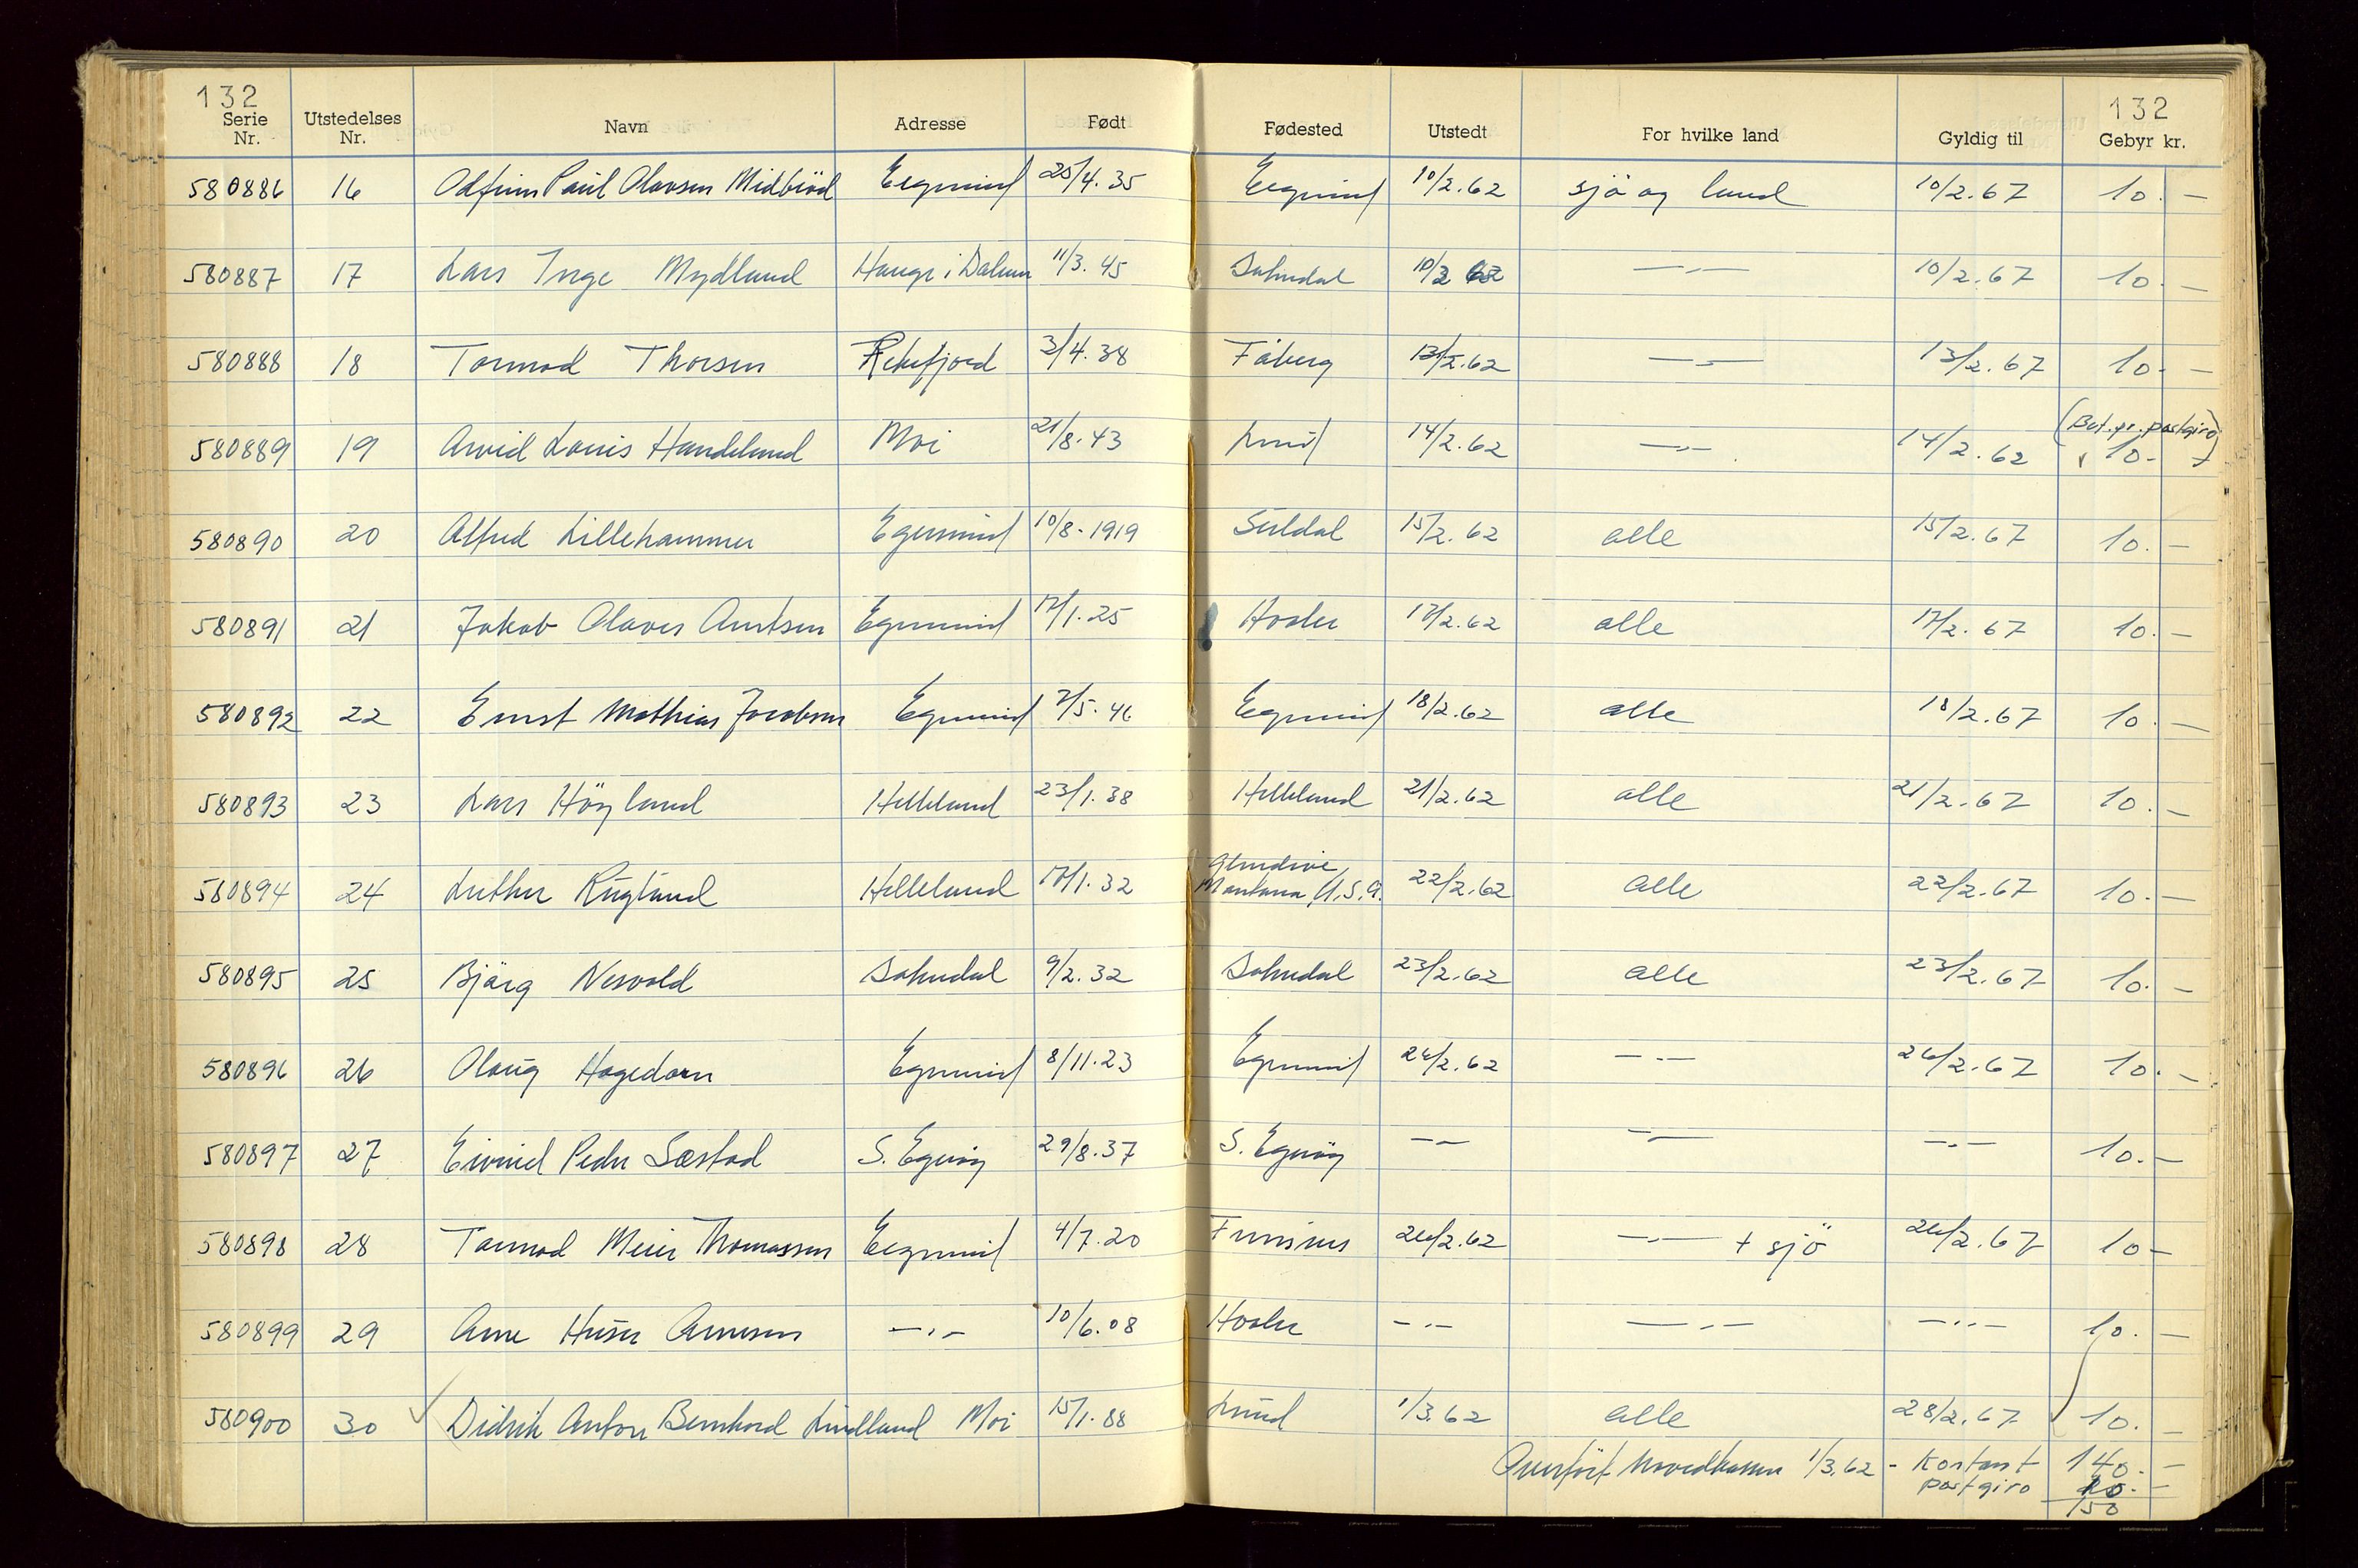 132 132
Serie Nr. Utstedelses Nr. Navn Adresse Født Fødested Utstedt For hvilke land Gyldig til Gebyr kr.
580886 16 Odfinn Paul Olavsen Midbröd Egersund 25/4.35 Egersund 10/2.62 sjö og land 10/2.67 10.-
580887 17 Lars Inge Mydland Hauge i Dalane 11/3.45 Sokndal 10/2 62 -"- 10/2.67 10.-
580888 18 Tormod Thorsen Rekefjord 3/4.38 Fåberg 13/2.62 -"- 13/2.67 10.-
580889 19 Arvid Louis Handeland Moi 21/8.43 Lund 14/2.62 -"- 14/2.62 (Bet. pr. postgiro) 10.-
580890 20 Alfred Lillehammer Egersund 10/8-1919 Suldal 15/2.62 alle 15/2.67 10.-
580891 21 Jakob Olaves Arntsen Egersund 17/1.25 Hosle 17/2.62 alle 17/2.67 10.-
580892 22 Ernst Mathias Jacobsen Egersund 7/5.46 Egersund 18/2.62 alle 18/2.67 10.-
580893 23 Lars Högland Helleland 23/1.38 Helleland 21/2.62 alle 21/2.67 10.-
580894 24 Luther Rugland Helleland 17/1.32 Glendive, Montana, U.S.A. 22/2.62 alle 22/2.67 10.-
580895 25 Bjärg Nesvold Sokndal 9/2.32 Sokndal 23/2.62 alle 23/2.67 10.-
580896 26 Olaug Hagedorn Egersund 8/11.23 Egersund 26/2.62 -"- 26/2.67 10.-
580897 27 Eivind Peder Sæstad S. Egeröy 29/8.37 S. Egeröy -"- -"- -"- 10.-
580898 28 Tormod Meier Thomassen Egersund 4/7.20 26/2.62 -"- + sjö 26/2.67 10-
580899 29 Arne Huser Arnesen -"- 10/6.08 Hosle -"- -"- -"- 10.-
580900 30 Didrik Anton Bernhard Lindland Moi 15/1.88 Lund 1/3.62 alle 28/2.67 10.-
Overfört hovedkassen 1/3.62 - Kontant 140.-
postgiro 10.-
150